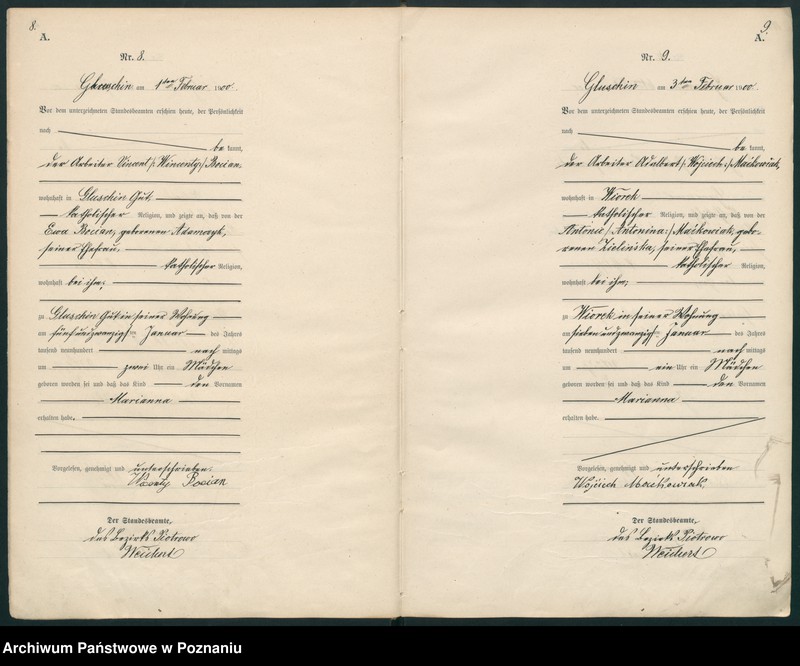 8.
A.
Nr. 8.
Gluschin am 1ten Februar 1900.
Vor dem unterzeichneten Standesbeamten erschien heute, der Persönlichkeit
nach
bekannt,
der Arbeiter Vincent /: Wincenty :/ Bocian
wohnhaft in Gluschin Gut
katholischer Religion, und zeigte an, daß von der
Ewa Bocian, geborenen Adamczyk,
seiner Ehefrau,
katholischer Religion,
wohnhaft bei ihm,
zu Gluschin Gut in seiner Wohnung
am fünfundzwanzigsten Januar des Jahres
tausend neunhundert nachmittags
um zwei Uhr ein Mädchen
geboren worden sei und daß das Kind den Vornamen
Marianna
erhalten habe.
Vorgelesen, genehmigt und unterschrieben.
Bocian
Der Standesbeamte,
des Bezirks Piotrowo
Weichert
9.
A.
Nr. 9.
Gluschin am 3ten Februar 1900.
Vor dem unterzeichneten Standesbeamten erschien heute, der Persönlichkeit
nach
bekannt,
der Arbeiter Adalbert /: Wojciech :/ Maćkowiak,
wohnhaft in Wiorek
katholischer Religion, und zeigte an, daß von der
Antonie /: Antonina :/ Maćkowiak, gebo-
renen Zielińska, seiner Ehefrau,
katholischer Religion,
wohnhaft bei ihm,
zu Wiorek in seiner Wohnung
am siebenundzwanzigsten Januar des Jahres
tausend neunhundert nachmittags
um ein Uhr ein Mädchen
geboren worden sei und daß das Kind den Vornamen
Marianna
erhalten habe.
Vorgelesen, genehmigt und unterschrieben
Wojciech Maćkowiak
Der Standesbeamte,
des Bezirks Piotrowo
Weichert
Archiwum Państwowe w Poznaniu